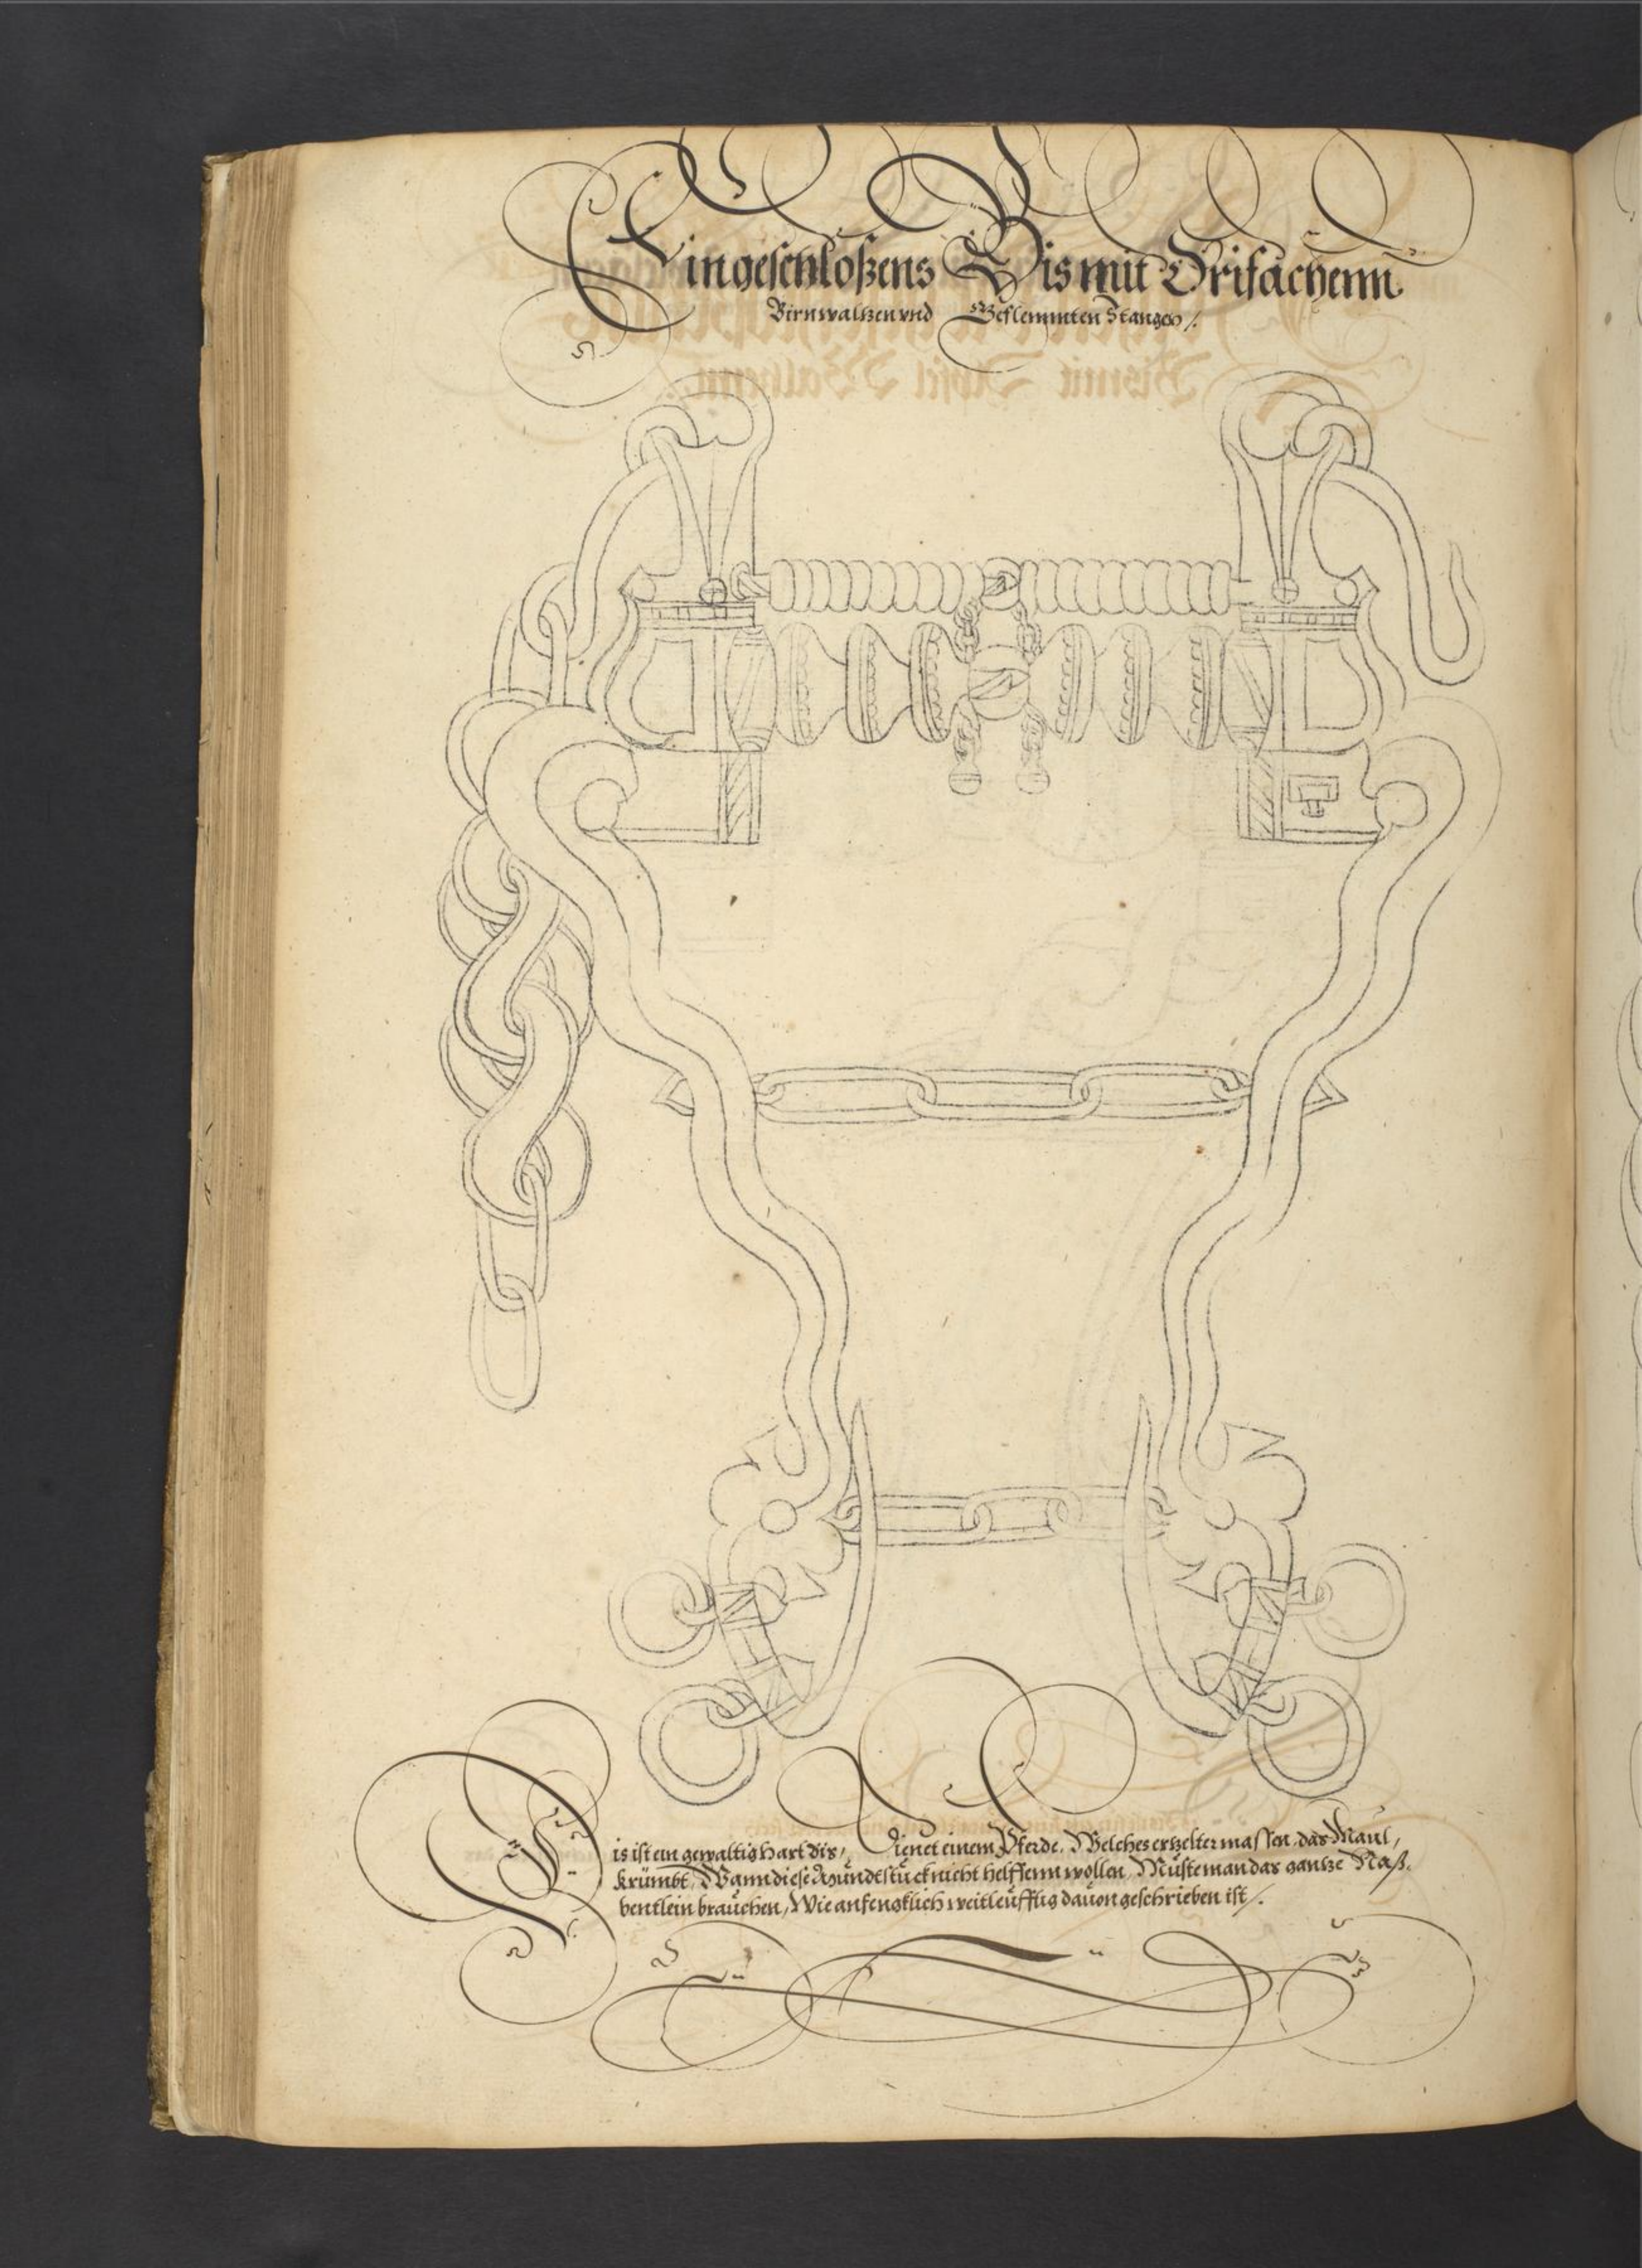 Ein geschloßens Bis mit Drifachenn
Birnwaltzen vnd Geflemmten Stangen /.
Dis ist ein gewaltig hart Bis, Dienet einem Pferde, Welches ertzelter massen, das Maul,
krümbt, Wann diese Mündtstück nicht helffenn wollen, Müste man das gantze Naß,
bentlein brauchen, Wie anfengklich weitleufftig dauon geschrieben ist /.